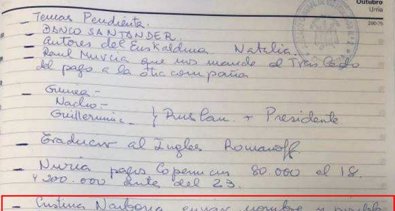 Outubro
Urria
- Temas Pendientes.
- BANCO SANTANDER.
- Autores del Euskalduna Natalia.
- Raul Murcia que nos mande el
del pago a la otra compañia
- Guinea -
- Nacho -
- Guillermina - } Ruslan. + Presidente
- Traductor al Ingles Romanoff.
- Nuria pagos Copernicus 80.000 el 18.
y 200.000 antes del 23.
- Cristina Narbona enviar nombre y